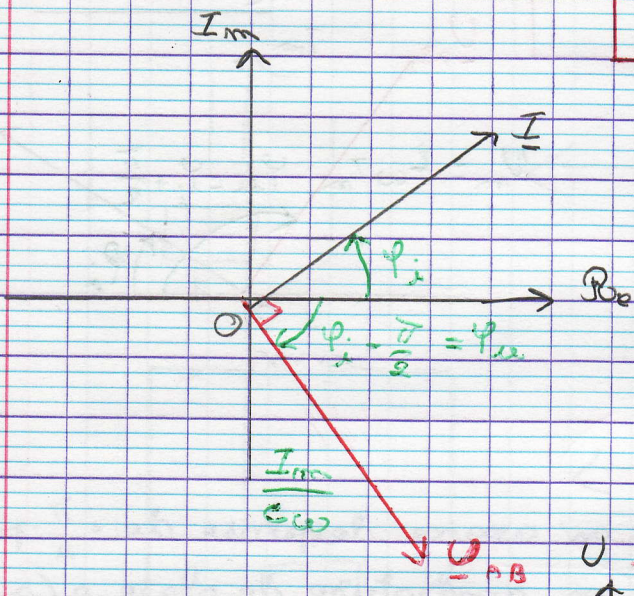 Im
I
φi
Re
O
φi - π/2 = φu
Im/cω
U
U AB